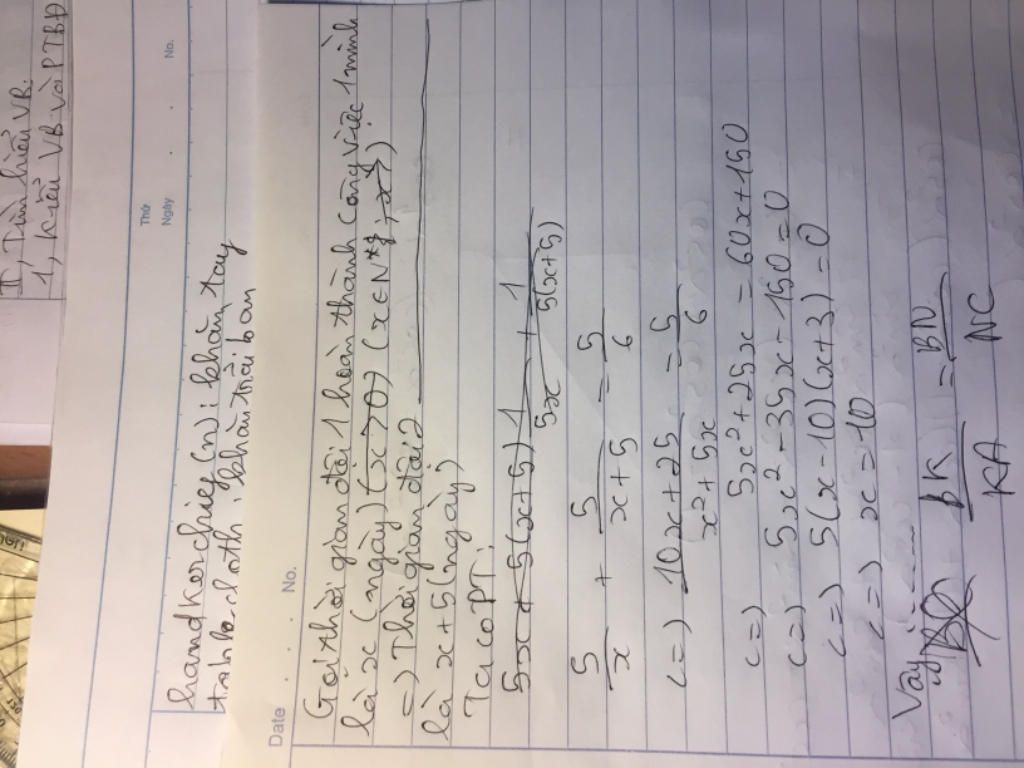 II, Tìm hiểu VB.
1, Kiểu VB và PTBĐ
Thứ
Ngày
No.
handkerchief (n): khăn tay
tablecloth: khăn trải bàn
Date . . No.
Gọi thời gian đội 1 hoàn thành công việc 1 mình
là x (ngày) (x > 0) (x ∈ N*
=) Thời gian đội 2
là x + 5 (ngày)
Ta có PT:
5x + 5(x+5) 1/5x + 1/5(x+5)
5/x + 5/x+5 = 5/6
<=) 10x+25/x²+5x = 5/6
<=) 5x² + 25x = 60x + 150
<=) 5x² - 35x - 150 = 0
<=) 5(x-10)(x+3) = 0
<=) x = 10
Vậy .......
BK/KA = BN/NC